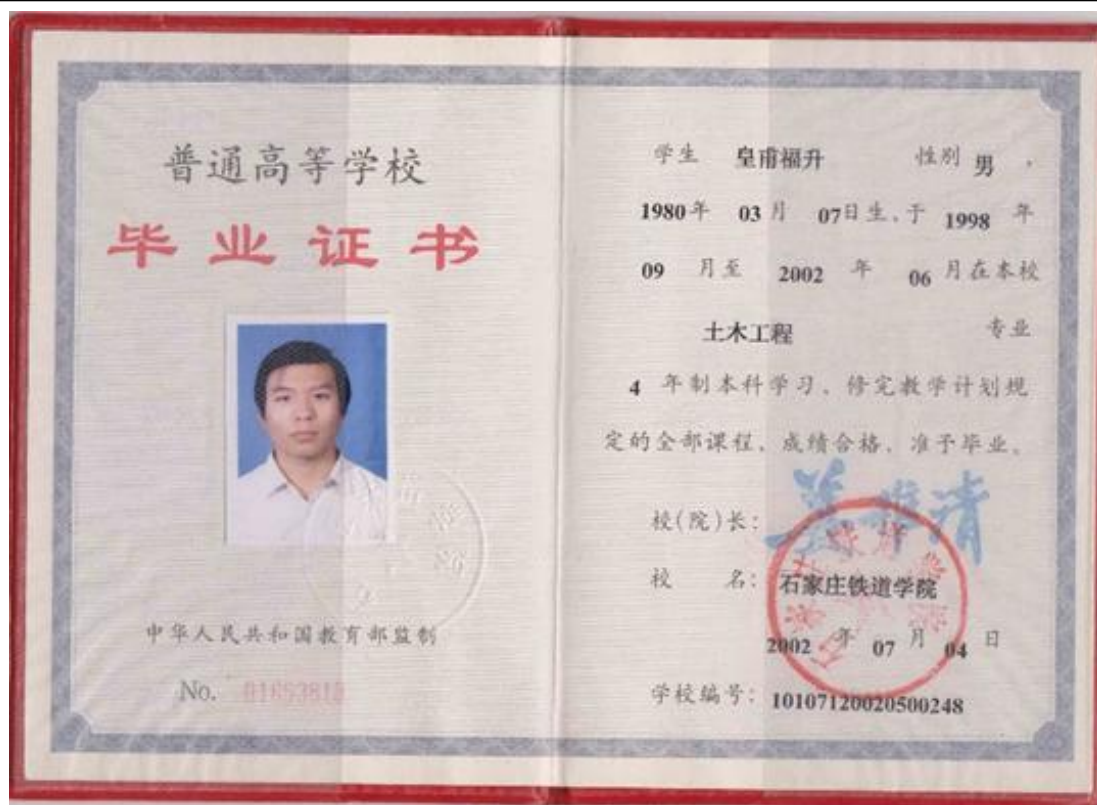 普通高等学校
毕业证书
中华人民共和国教育部监制
No.
学生 皇甫福升 性别 男，
1980年 03月 07日生，于 1998 年
09 月至 2002 年 06 月在本校
土木工程 专业
4 年制本科学习，修完教学计划规
定的全部课程，成绩合格，准予毕业。
校(院)长：
校 名：石家庄铁道学院
2002 年 07 月 04 日
学校编号：10107120020500248